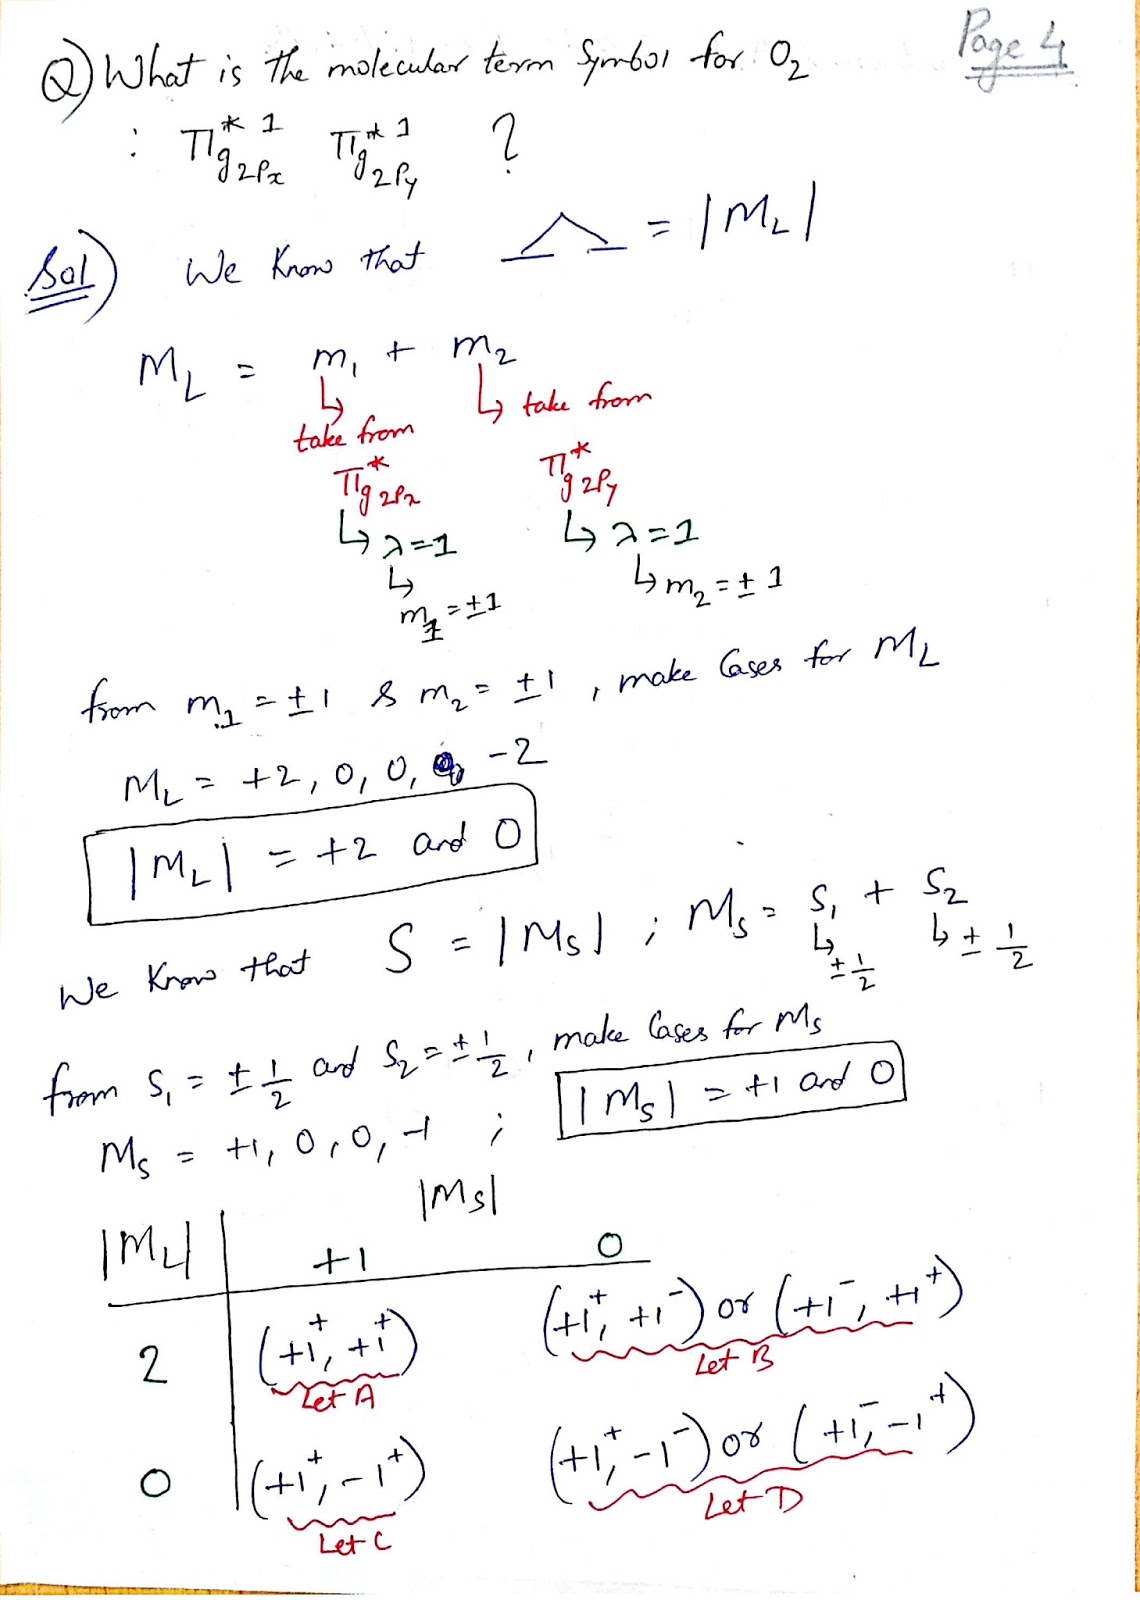 Page 4
Q) What is the molecular term Symbol for O₂
: π*g2Px¹ π*g2Py¹ ?
Sol) We Know that Λ = |M_L|
M_L = m₁ + m₂
↳ take from ↳ take from
π*g2Px π*g2Py
↳ λ=1 ↳ λ=1
↳ m₁ = ±1 ↳ m₂ = ±1
from m₁ = ±1 & m₂ = ±1 , make Cases for M_L
M_L = +2, 0, 0, -2
|M_L| = +2 and 0
We Know that S = |M_s| ; M_s = S₁ + S₂
↳ ± 1/2 ↳ ± 1/2
from S₁ = ± 1/2 and S₂ = ± 1/2 , make Cases for M_s
M_s = +1, 0, 0, -1 ; |M_s| = +1 and 0
|M_s|
|M_L| +1 0
2 (+1⁺, +1⁺) (+1⁺, +1⁻) or (+1⁻, +1⁺)
Let A Let B
0 (+1⁺, -1⁺) (+1⁺, -1⁻) or (+1⁻, -1⁺)
Let C Let D